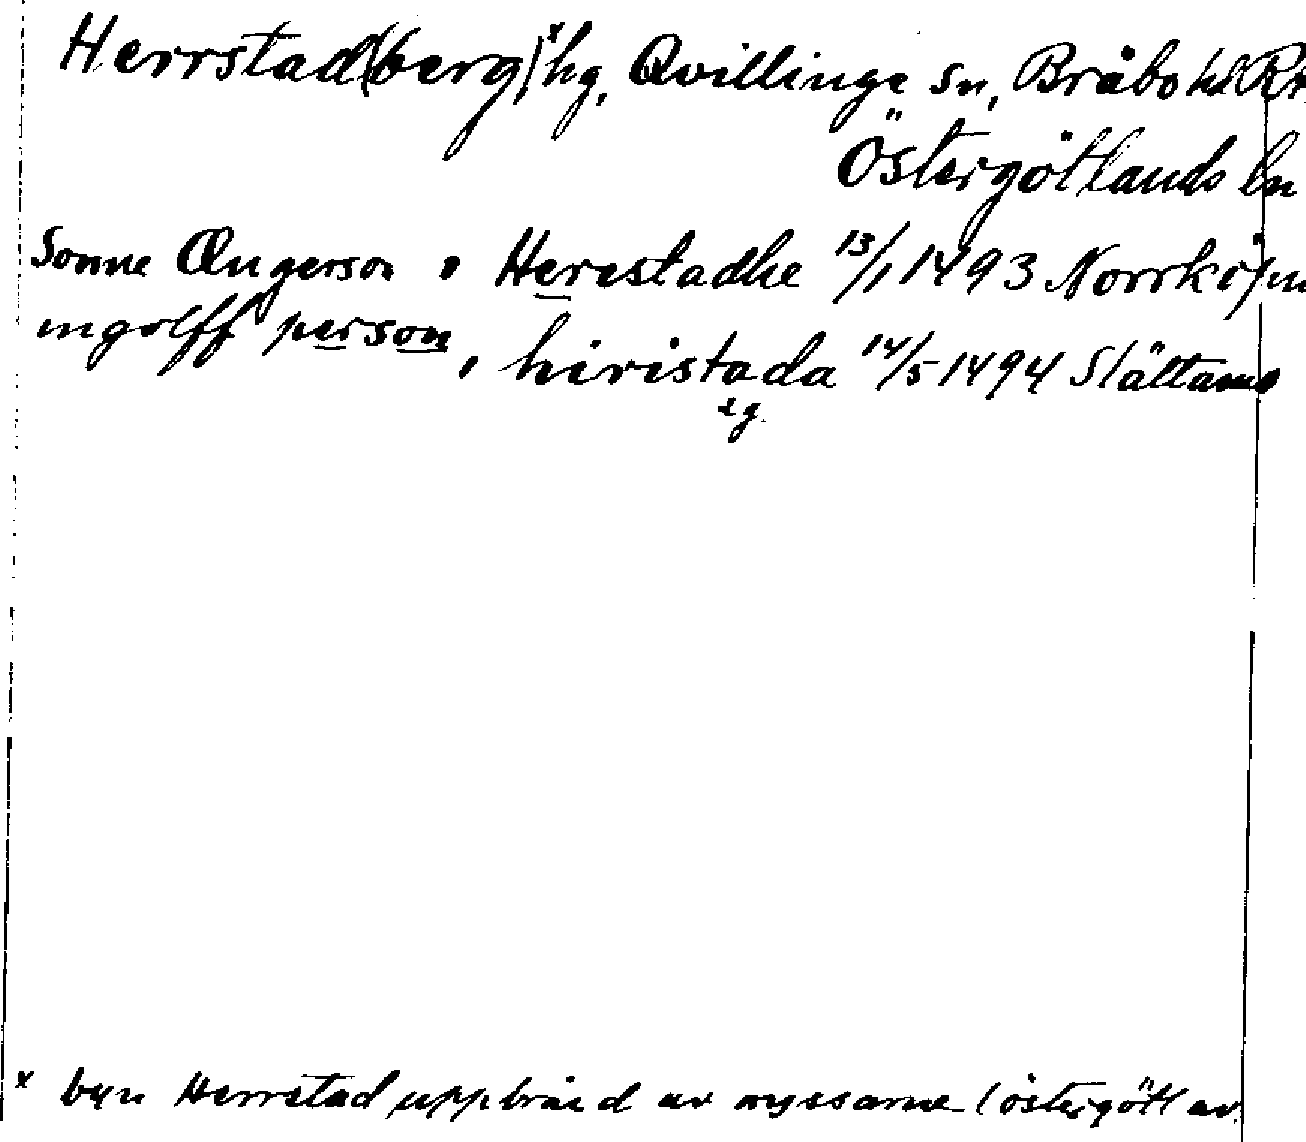 Herrstad(berg)ˣ hg, Qvillinge sn, Bråbo hd
Östergötlands ln
Sonne Œngerson i Herestadhe 13/1 1493 Norrköpin
ingolff person, hiristada 14/5 1494 Slättamo
eg.
x byn Herrstad uppbränd av ryssarne (östergötl av